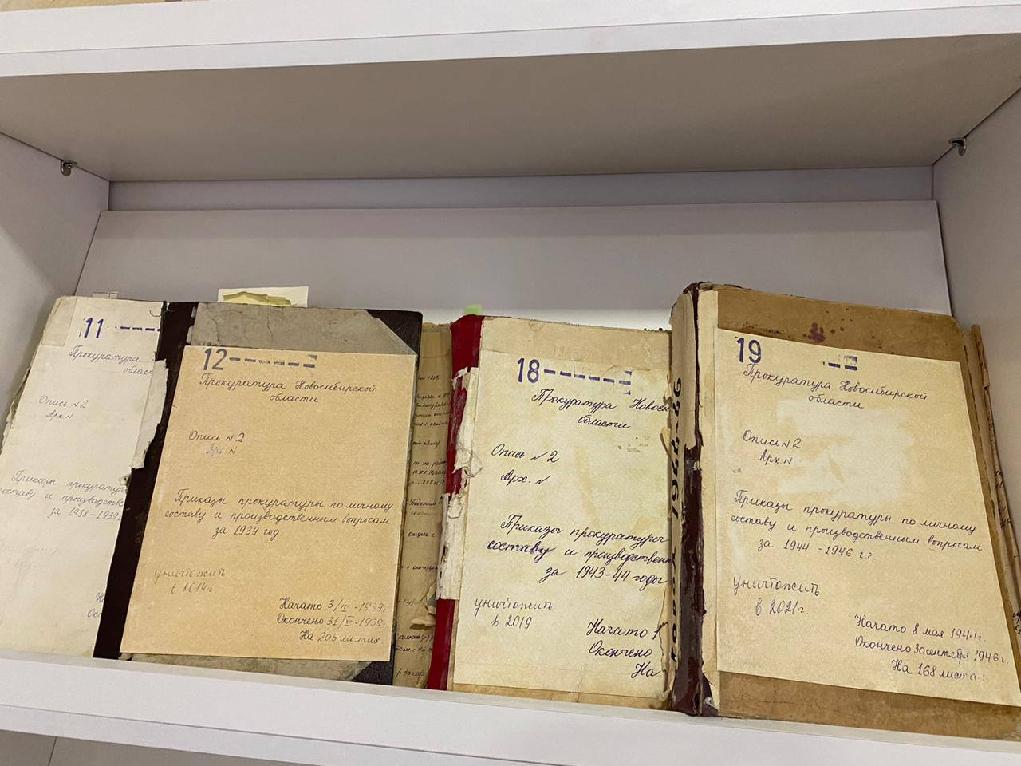 11
Прокуратура
област
Опись N2
Арх. N
Приказы прокуратуры
составу и производстве
за 1938-1939
12
Прокуратура Новосибирской
области
Опись N2
Арх N
Приказы прокуратуры по личному
составу и производственным вопросам
за 1939 год
уничтожить
Начато 3/
Окончено 31/
На 205 листах
18
Прокуратура Новоси
области
Опись N2
Арх. N
Приказы прокуратуры
составу и производственн
за 1943-44 годы
уничтожить
в 2019
Начато 1
Окончено
На
1944-46
19
Прокуратура Новосибирской
области
Опись N2
Арх. N
Приказы прокуратуры по личному
составу и производственным вопросам
за 1944-1946 г.г.
уничтожить
в 2021г.
Начато 8 мая 1944г.
Окончено 30 сентября 1946г.
На 168 листах